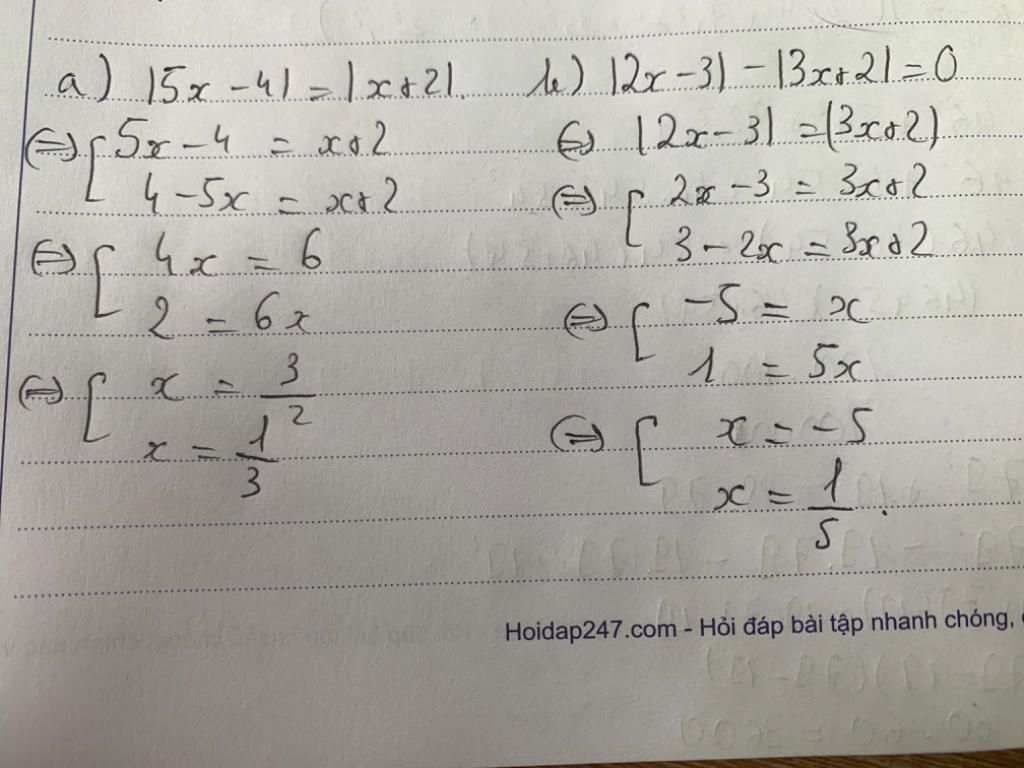 a) |5x - 4| = |x+2|.
⇔ [ 5x - 4 = x+2
4 - 5x = x+2
⇔ [ 4x = 6
2 = 6x
⇔ [ x = 3/2
x = 1/3
b) |2x - 3| - |3x+2| = 0
⇔ |2x - 3| = |3x+2|
⇔ [ 2x - 3 = 3x+2
3 - 2x = 3x+2
⇔ [ -5 = x
1 = 5x
⇔ [ x = -5
x = 1/5.
Hoidap247.com - Hỏi đáp bài tập nhanh chóng,